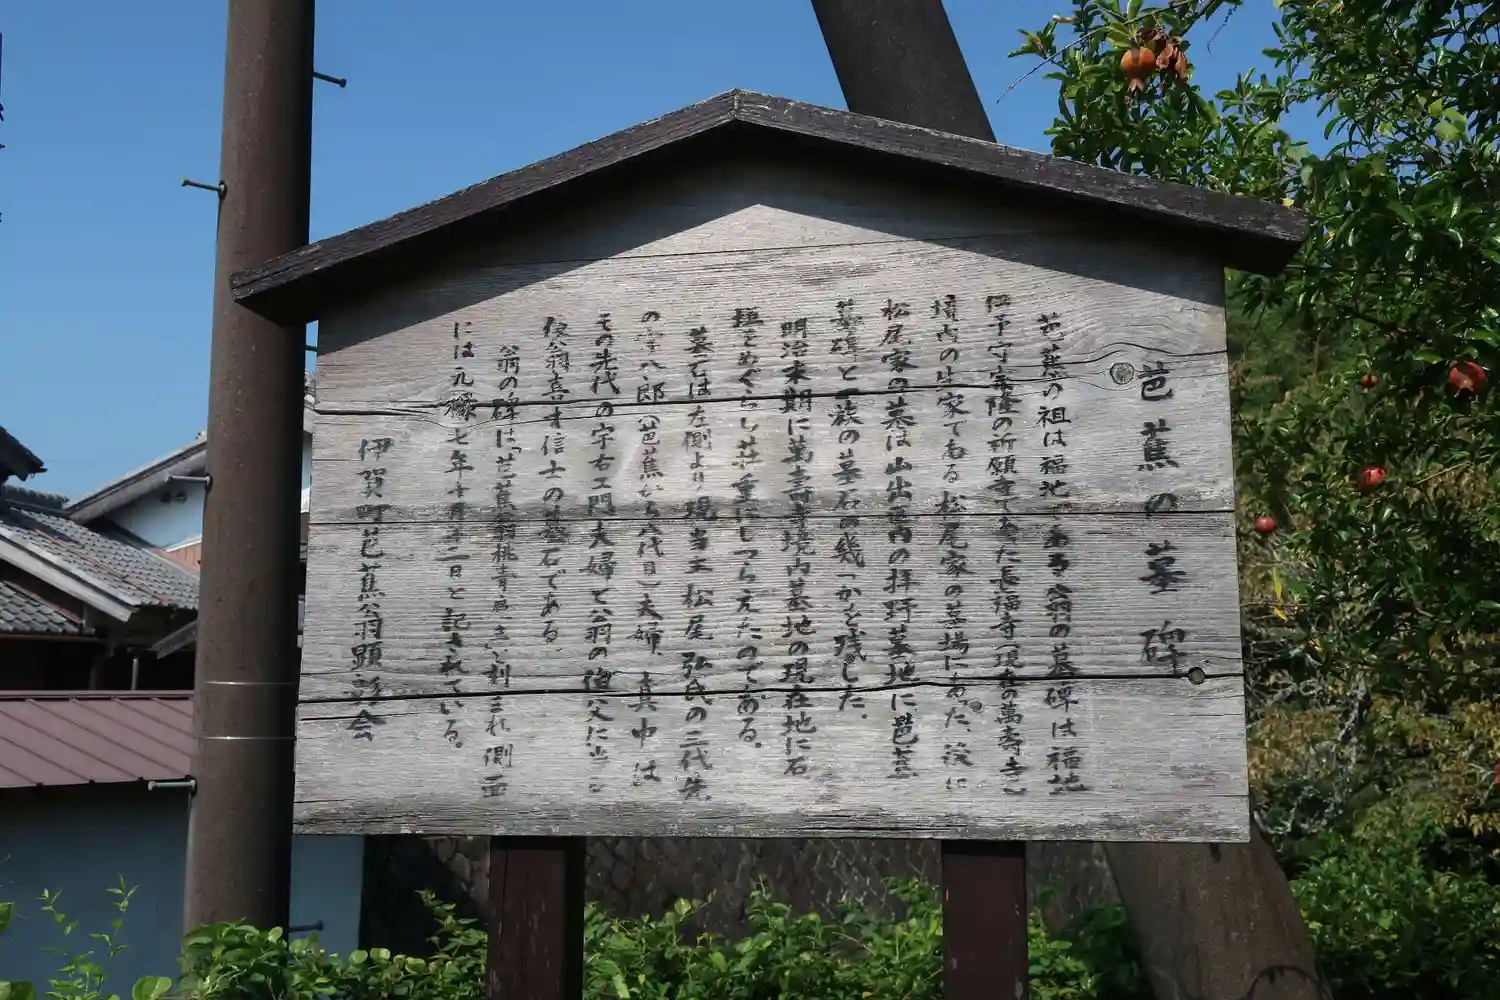 芭蕉の墓碑
芭蕉の祖は福地 翁の墓碑は福地
伊予守宗隆の祈願寺であった長福寺(現在の萬寿寺)
境内の生家である松尾家の墓場にあった、後に
松尾家の墓は山出区内の拝野墓地に芭蕉
墓碑と一族の墓石の幾「かを残した。
明治末期に萬寿寺境内墓地の現在地に石
垣をめぐらし荘重にしつらえたのである。
墓石は左側より現当主 松尾 弘氏の三代先
の 八郎(芭蕉から八代目)夫婦、真中は
その先代の宇右エ門夫婦と公翁の 父に当る
俊翁喜才信士の墓石である。
翁の碑は「芭蕉翁桃青 」と刻まれ側面
には元禄七年十月十二日と記されている。
伊賀町芭蕉翁顕彰会